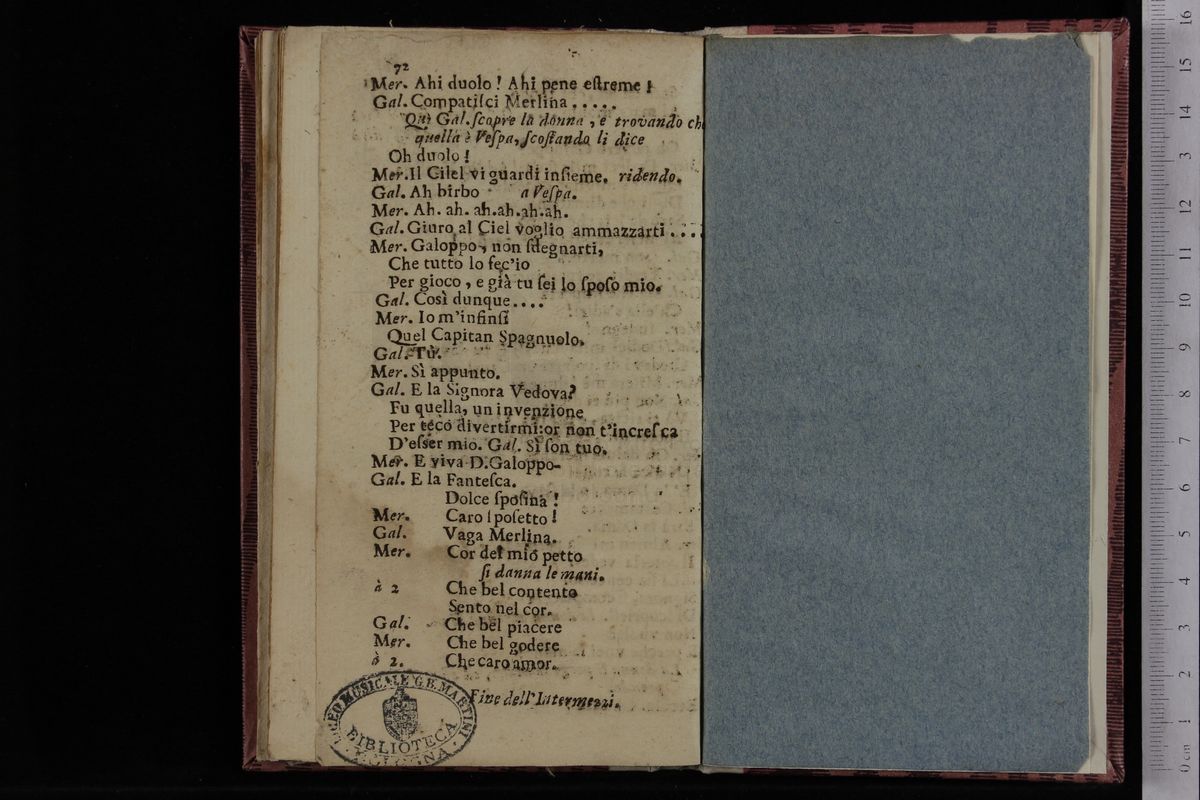 72
Mer. Ahi duolo! Ahi pene eſtreme!
Gal. Compatiſci Merlina.....
Quì Gal. ſcopre la donna, e trovando che
quella è Veſpa, ſcoſtando li dice
Oh duolo!
Mer. Il Cilel vi guardi inſieme. ridendo.
Gal. Ah birbo a Veſpa.
Mer. Ah. ah. ah.ah.ah.ah.
Gal. Giuro al Ciel voglio ammazzarti....
Mer. Galoppo, non ſdegnarti,
Che tutto lo fec'io
Per gioco, e già tu ſei lo ſpoſo mio.
Gal. Così dunque....
Mer. Io m'infinſi
Quel Capitan Spagnuolo.
Gal. Tù.
Mer. Sì appunto.
Gal. E la Signora Vedova?
Fu quella, un invenzione
Per teco divertirmi: or non t'increſca
D'eſser mio. Gal. Sì ſon tuo.
Mer. E viva D.Galoppo-
Gal. E la Fanteſca.
Dolce ſpoſina!
Mer. Caro ſpoſetto!
Gal. Vaga Merlina.
Mer. Cor del mio petto
ſi danna le mani.
à 2 Che bel contento
Sento nel cor.
Gal. Che bel piacere
Mer. Che bel godere
à 2. Che caro amor.
Fine dell'Intermezzi.
LICEO MUSICALE G.B. MARTINI
BIBLIOTECA
BOLOGNA
0 cm 1 2 3 4 5 6 7 8 9 10 11 12 13 14 15 16